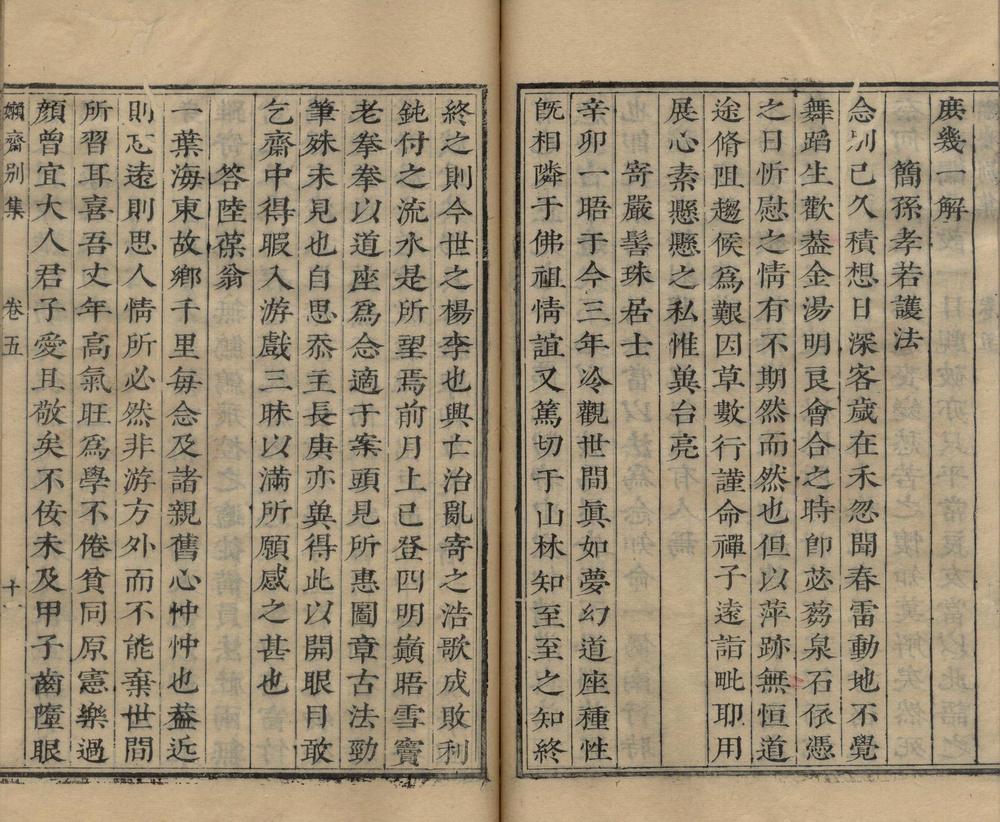 庻幾一解
簡孫孝若護法
念別已久積想日深客歲在禾忽聞春雷動地不覺
舞蹈生歡葢金湯明良會合之時卽苾蒭泉石依憑
之日忻慰之情有不期然而然也但以萍跡無恒道
途脩阻趨候爲艱因草數行謹命禪子遠詣毗耶用
展心素懸懸之私惟兾台亮
寄嚴髻珠居士
辛卯一晤于今三年冷觀世間眞如夢幻道座種性
旣相隣于佛祖情誼又篤切于山林知至至之知終
終之則今世之楊李也興亡治亂寄之浩歌成敗利
鈍付之流水是所望焉前月上巳登四明巔晤雪竇
老拳拳以道座爲念適于案頭見所惠圖章古法勁
筆殊未見也自思忝主長庚亦兾得此以開眼目敢
乞齋中得暇入游戲三昧以滿所願感之甚也
答陸葆翁
一葉海東故鄉千里每念及諸親舊心忡忡也葢近
則忘遠則思人情所必然非游方外而不能棄世間
所習耳喜吾丈年高氣旺爲學不倦貧同原憲樂過
顏曾宜大人君子愛且敬矣不侫未及甲子齒墮眼
嬾齋別集
卷五
十一